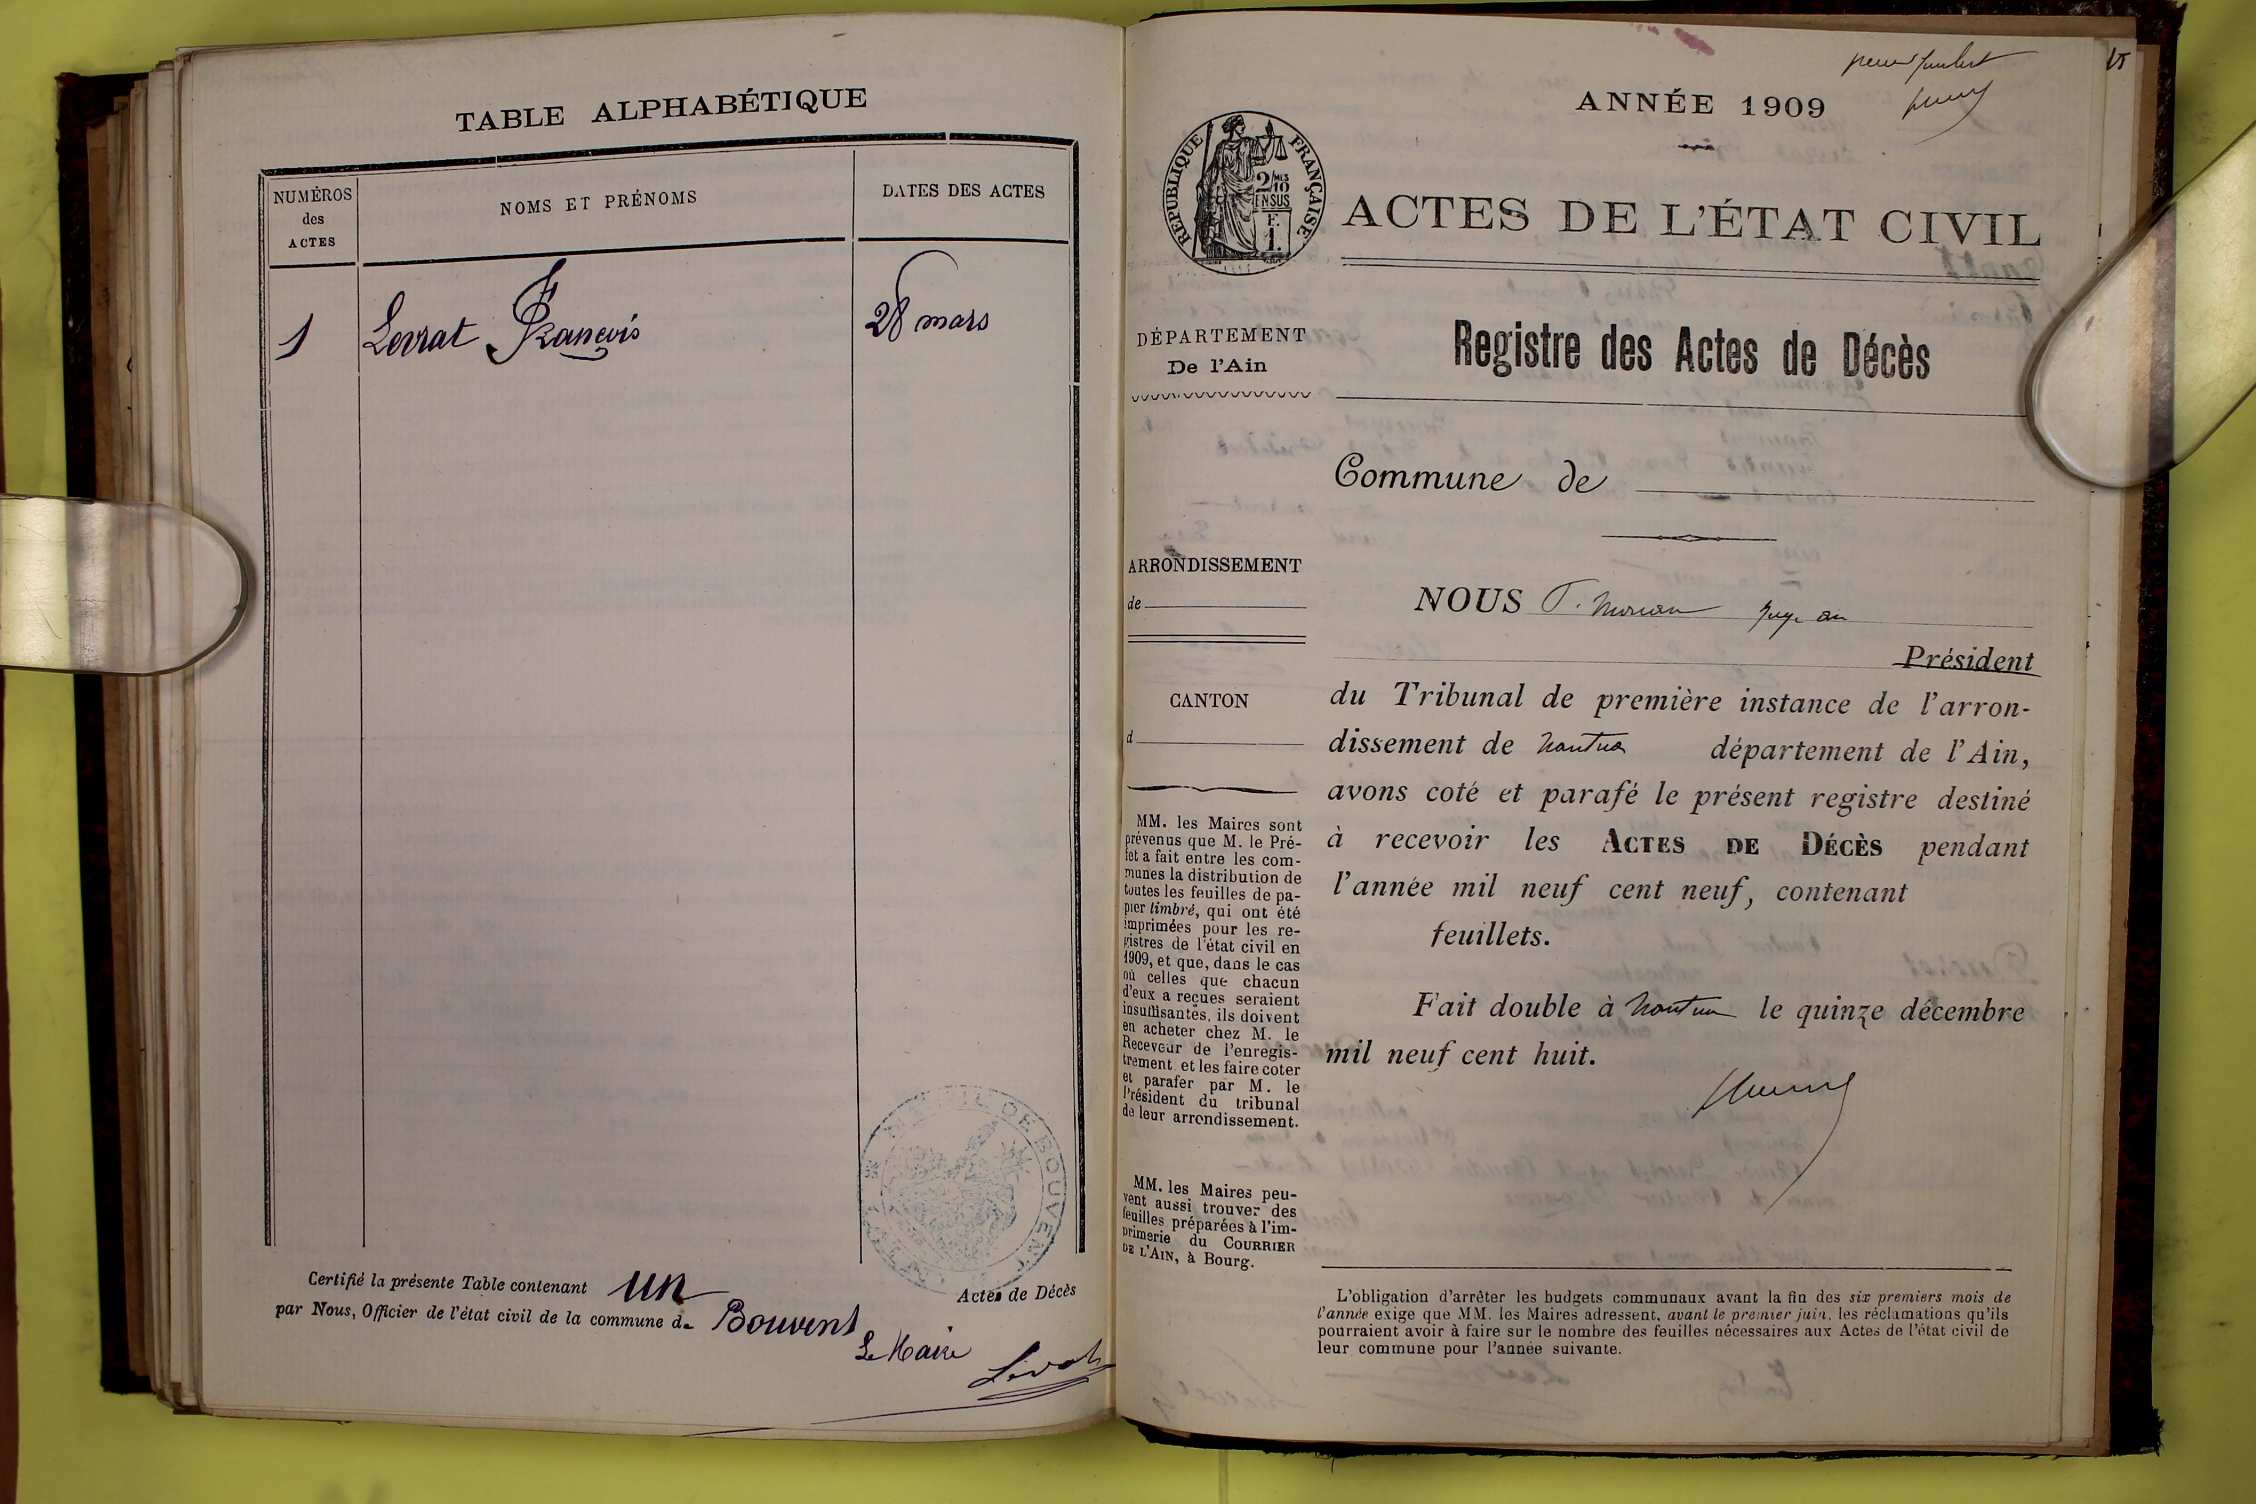 TABLE ALPHABÉTIQUE
NUMÉROS
des
ACTES
NOMS ET PRÉNOMS
DATES DES ACTES
1 Levrat François 28 mars
MAIRIE DE BOUVENT
Certifié la présente Table contenant un Actes de Décès
par Nous, Officier de l'état civil de la commune de Bouvent
Le Maire
Levrat
15
ANNÉE 1909
RÉPUBLIQUE FRANÇAISE
2/10
EN SUS
ACTES DE L'ÉTAT CIVIL
DÉPARTEMENT
De l'Ain
ARRONDISSEMENT
de
CANTON
d
MM. les Maires sont
prévenus que M. le Pré-
fet a fait entre les com-
munes la distribution de
toutes les feuilles de pa-
pier timbré, qui ont été
imprimées pour les re-
gistres de l'état civil en
1909, et que, dans le cas
où celles que chacun
d'eux a reçues seraient
insuffisantes, ils doivent
en acheter chez M. le
Receveur de l'enregis-
trement et les faire coter
et parafer par M. le
Président du tribunal
de leur arrondissement.
MM. les Maires peu-
vent aussi trouver des
feuilles préparées à l'im-
primerie du COURRIER
DE L'AIN, à Bourg.
Registre des Actes de Décès
Commune de
NOUS juge au
Président
du Tribunal de première instance de l'arron-
dissement de Nantua département de l'Ain,
avons coté et parafé le présent registre destiné
à recevoir les ACTES DE DÉCÈS pendant
l'année mil neuf cent neuf, contenant
feuillets.
Fait double à Nantua le quinze décembre
mil neuf cent huit.
L'obligation d'arrêter les budgets communaux avant la fin des six premiers mois de
l'année exige que MM. les Maires adressent, avant le premier juin, les réclamations qu'ils
pourraient avoir à faire sur le nombre des feuilles nécessaires aux Actes de l'état civil de
leur commune pour l'année suivante.